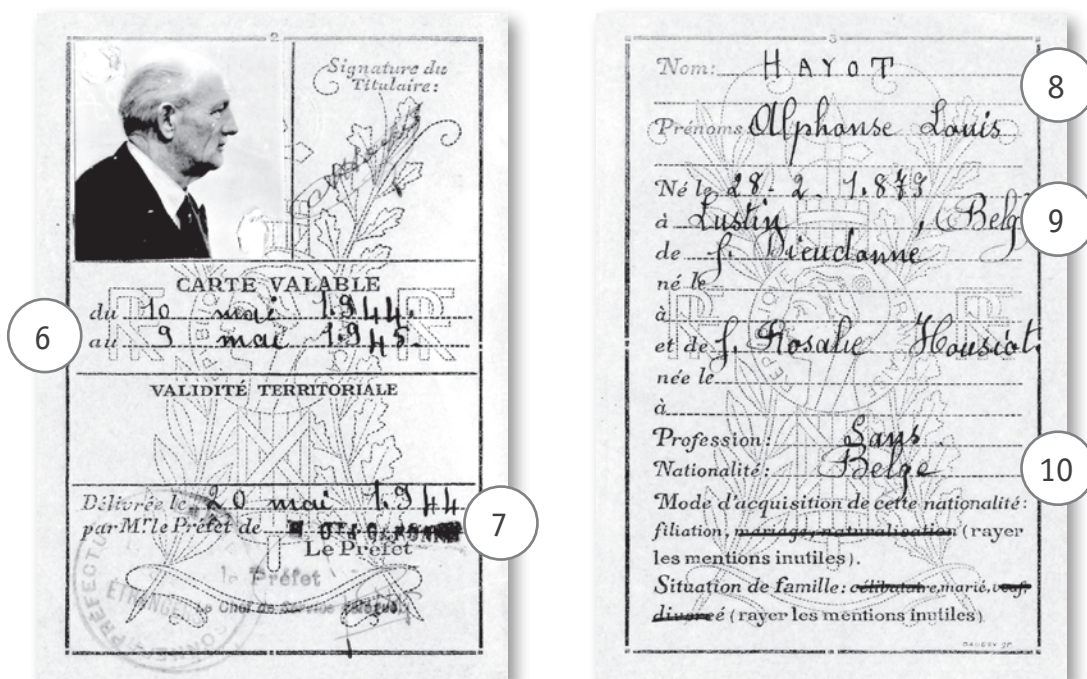 2
Signature du
Titulaire:
CARTE VALABLE
du 10 mai 1.944.
6
au 9 mai 1.945.
VALIDITÉ TERRITORIALE
Délivrée le 20 mai 1.944
par Mr. le Préfet de
7
Le Préfet
le Préfet
Le Chef de Service
3
Nom: HAYOT
8
Prénoms: Alphonse Louis
Né le 28-2-1.879
à Lustin, Belg
9
de f. Dieudonné
né le
à
et de f. Rosalie Housiot.
née le
à
Profession: Sans.
Nationalité: Belge
10
Mode d'acquisition de cette nationalité:
filiation, mariage, naturalisation (rayer
les mentions inutiles).
Situation de famille: célibataire, marié, veuf,
divorcé (rayer les mentions inutiles)